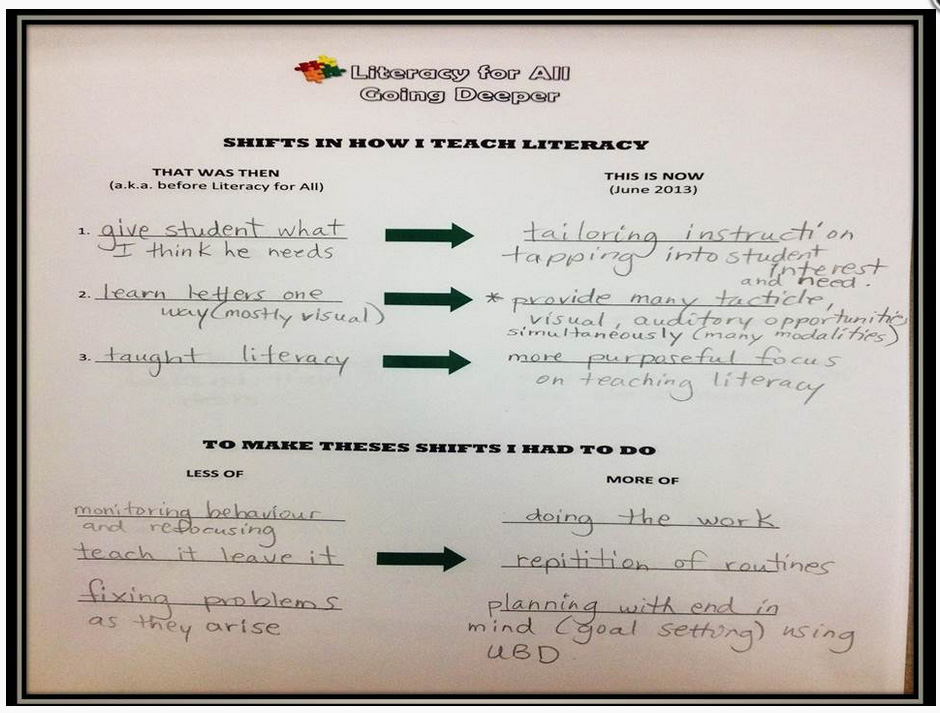 Literacy for All
Going Deeper
SHIFTS IN HOW I TEACH LITERACY
THAT WAS THEN
(a.k.a. before Literacy for All)
THIS IS NOW
(June 2013)
1. give student what
I think he needs
tailoring instruction
tapping into student
interest
and need.
2. learn letters one
way (mostly visual)
* provide many tacticle,
visual, auditory opportunities
simultaneously (many modalities)
3. taught literacy
more purposeful focus
on teaching literacy
TO MAKE THESES SHIFTS I HAD TO DO
LESS OF
MORE OF
monitoring behaviour
and refocusing
doing the work
teach it leave it
repitition of routines
fixing problems
as they arise
planning with end in
mind (goal setting) using
UBD